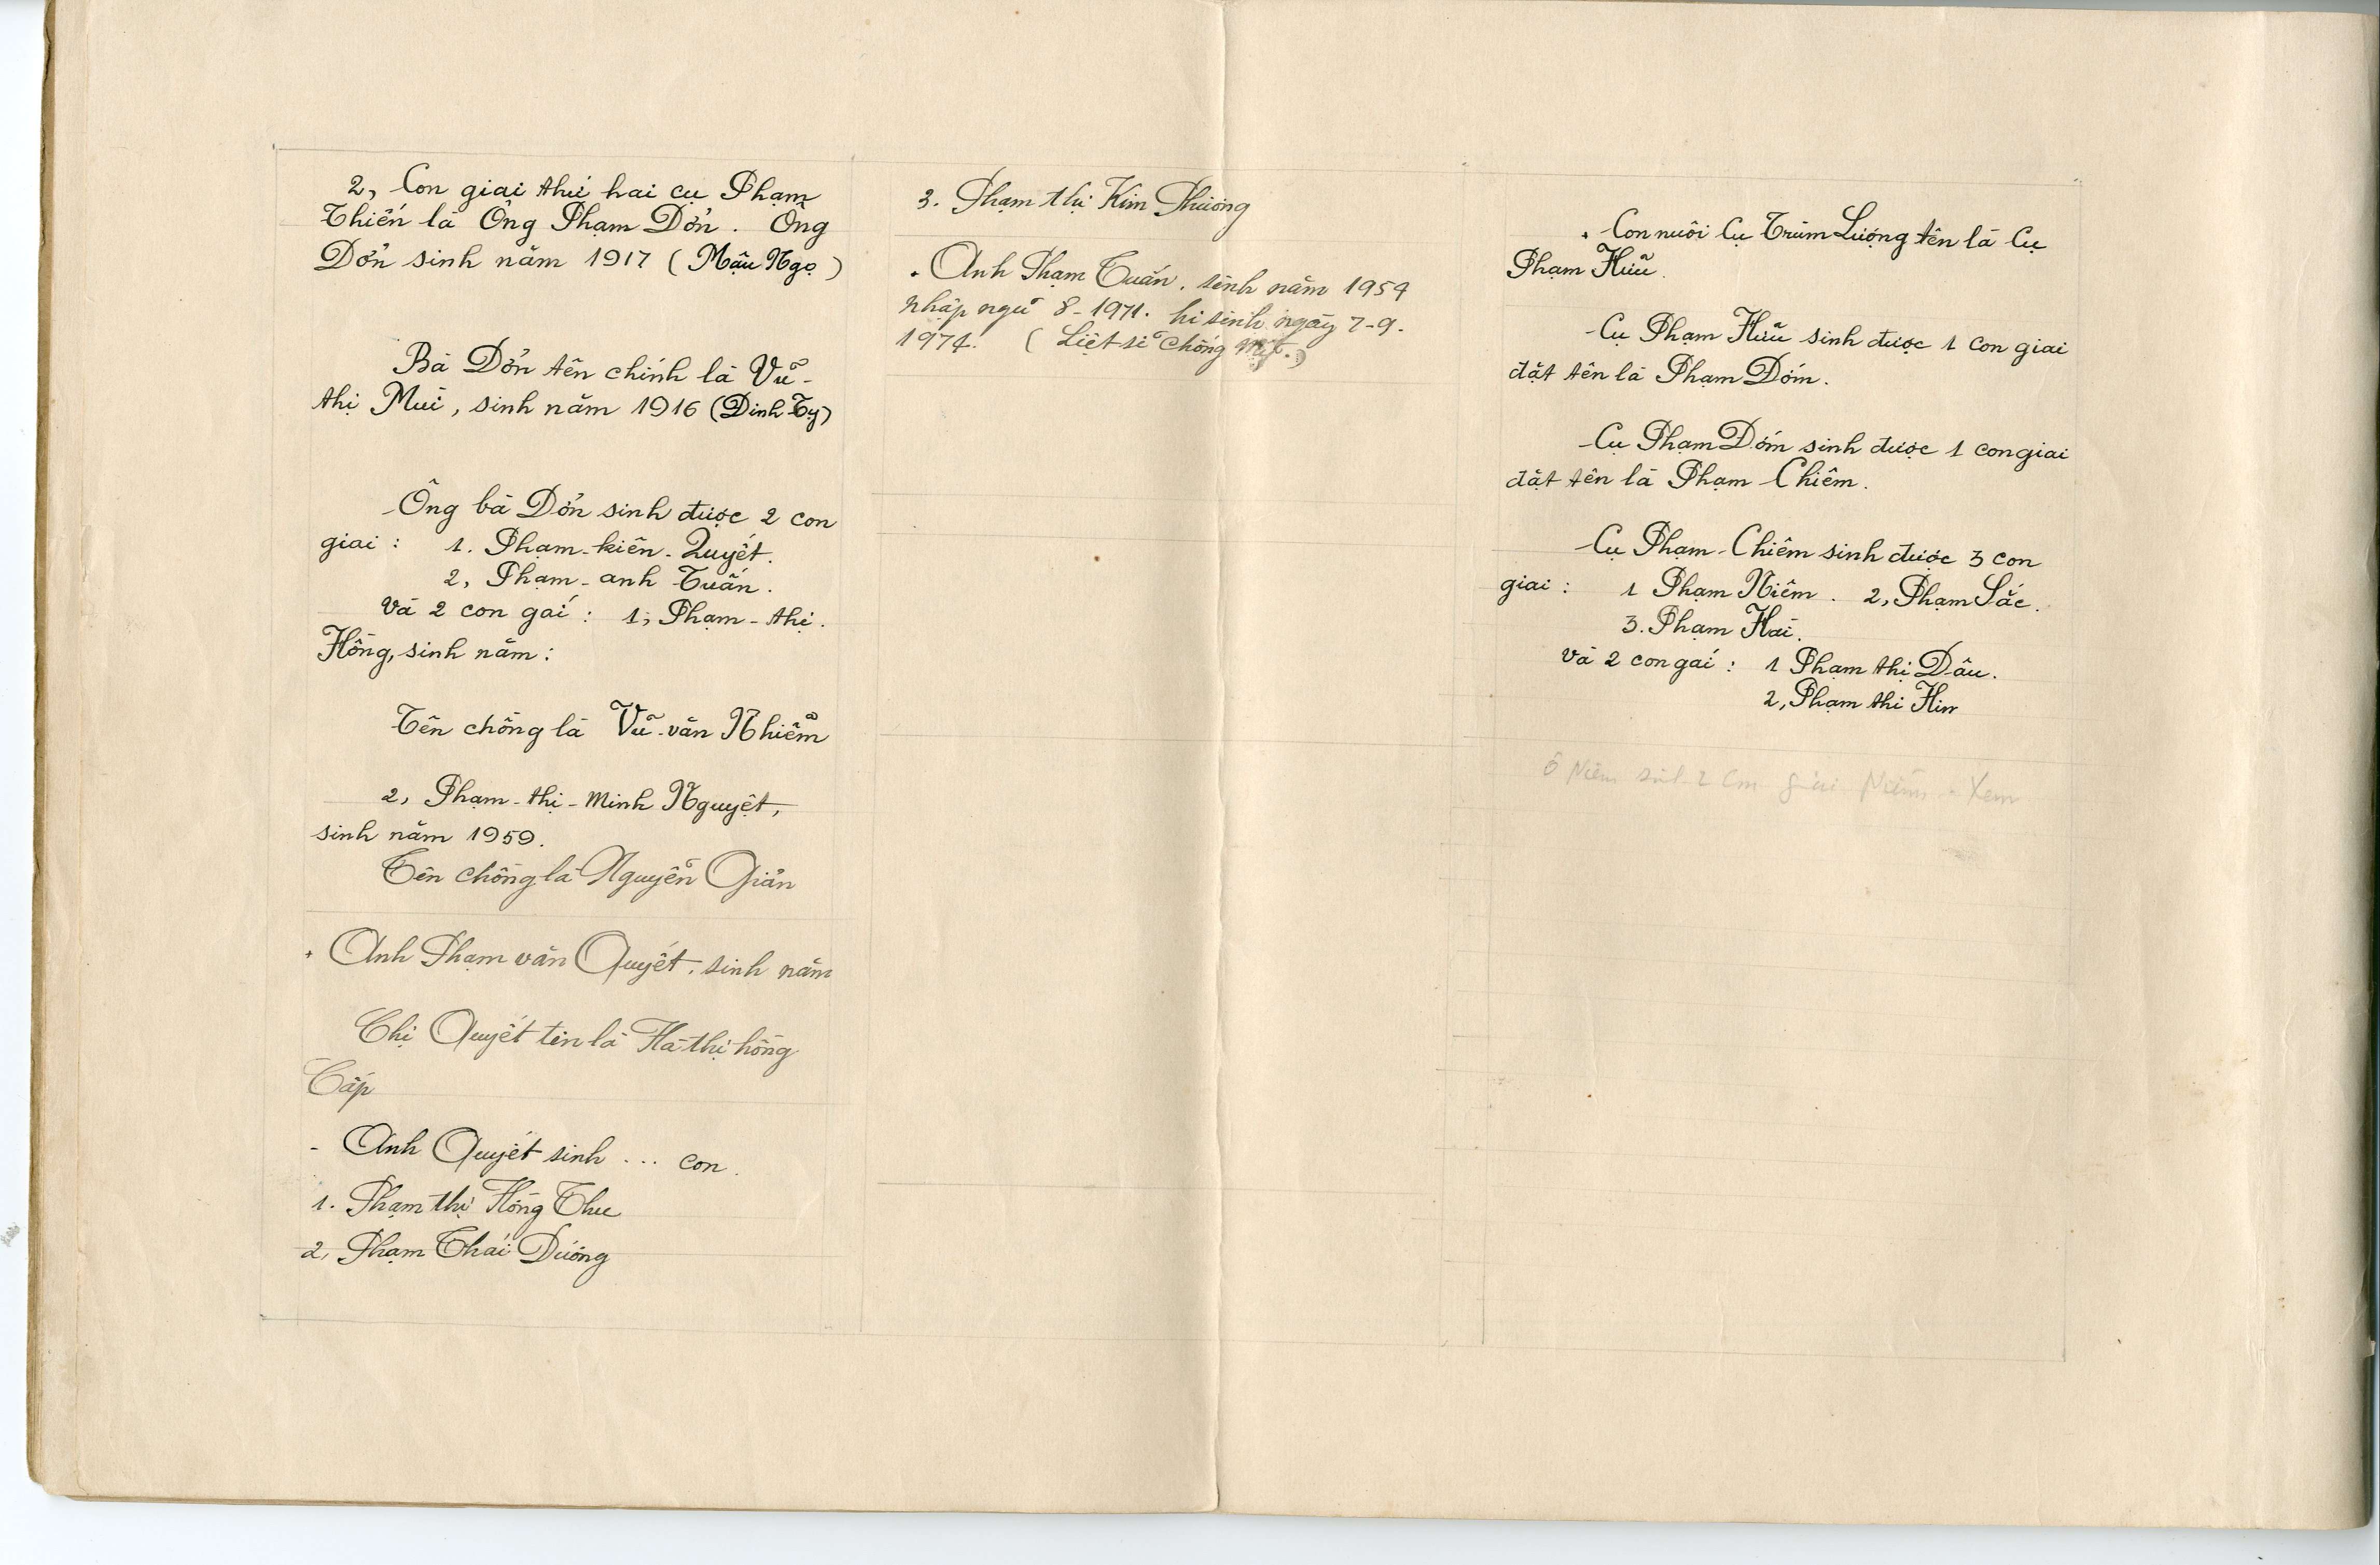 2, Con giai thứ hai cụ Phạm
Thiến là Ông Phạm Dởn. Ông
Dởn sinh năm 1917 (Mậu Ngọ)
Bà Dởn tên chính là Vũ-
thị Mùi, sinh năm 1916 (Đinh Tỵ)
Ông bà Dởn sinh được 2 con
giai : 1. Phạm-kiên-Quyết.
2, Phạm-anh Tuấn.
Và 2 con gái : 1, Phạm-thị.
Hồng, sinh năm :
Tên chồng là Vũ-văn Nhiễm
2, Phạm-thị-Minh Nguyệt,
sinh năm 1959.
Tên chồng là Nguyễn Giản
+ Anh Phạm văn Quyết, sinh năm
Chị Quyết tên là Hà thị hồng
Cấp
- Anh Quyết sinh ... con.
1. Phạm thị Hồng Thu
2, Phạm Thái Dương
3. Phạm thị Kim Phương
. Anh Phạm Tuấn, sinh năm 1954
nhập ngũ 8-1971. hi sinh ngày 7-9-
1974. (Liệt sĩ chống Mỹ.)
+ Con nuôi Cụ Trùm Lượng tên là Cụ
Phạm Hữu.
Cụ Phạm Hữu sinh được 1 con giai
đặt tên là Phạm Dóm.
Cụ Phạm Dóm sinh được 1 con giai
đặt tên là Phạm Chiêm.
Cụ Phạm-Chiêm sinh được 3 con
giai : 1 Phạm Niêm. 2, Phạm Sắc.
3. Phạm Hai.
Và 2 con gái : 1 Phạm thị Dâu.
2, Phạm thị Hin
Ô Niêm sinh 2 con giai